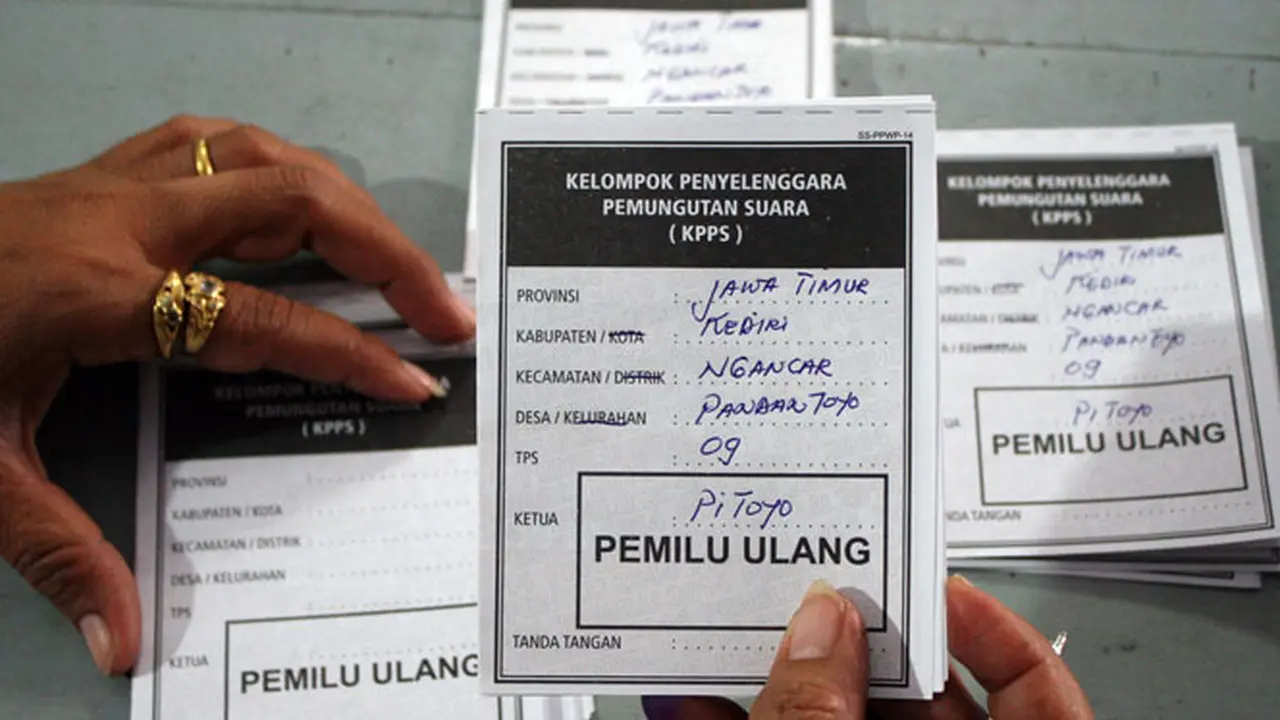 JAWA TIMUR
KEDIRI
NGANCAR
PANDANTOYO
SS-PPWP-14
KELOMPOK PENYELENGGARA
PEMUNGUTAN SUARA
( KPPS )
PROVINSI : JAWA TIMUR
KABUPATEN / KOTA : KEDIRI
KECAMATAN / DISTRIK : NGANCAR
DESA / KELURAHAN : PANDANTOYO
TPS : 09
KETUA : PiToyo
PEMILU ULANG
TANDA TANGAN :
KELOMPOK PENYELENGGARA
PEMUNGUTAN SUARA
( KPPS )
JAWA TIMUR
KEDIRI
NGANCAR
PANDANTOYO
09
PiToyo
PEMILU ULANG
TANGAN
KELOMPOK PENYELENGGARA
PEMUNGUTAN SUARA
( KPPS )
PROVINSI :
KABUPATEN / KOTA :
KECAMATAN / DISTRIK :
DESA / KELURAHAN :
TPS
KETUA
PEMILU ULANG